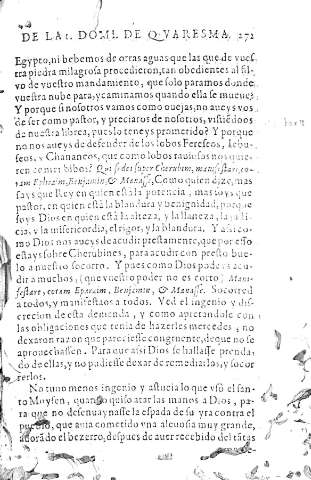 DE LA 1. DOMI. DE QVARESMA. 272
Egypto, ni bebemos de otras aguas que las que de vues
tra piedra milagrosa procedieron, tan obedientes al sil-
vo de vuestro mandamiento, que solo paramos donde
vuestra nube para, y caminamos quando ella se mueue?
Y porque si nosotros vamos como ouejas, no aueys vos
de ser como pastor, y preciaros de nosotros, vistiedoos
de nuestra librea, pues lo teneys prometido? Y porque
no nos aueys de defender de los lobos Fereseos, Iebu-
seos, y Chananeos, que como lobos rauiosos nos quie-
ren comer biuos? Qui sedes super Cherubim, manifestare, co-
ram Ephraim, Beniamin, & Manasse. Como quien dize, mas
soys que Rey en quien está la potencia, mas soys que
pastor, en quien está la blandura y benignidad, porque
soys Dios en quien está la alteza, y la llaneza, la justi-
cia, y la misericordia, el rigor, y la blandura. Y assi co-
mo Dios nos aueys de acudir prestamente, que por esso
estays sobre Cherubines, para acudir con presto bue-
lo a nuestro socorro. Y pues como Dios podeys acu-
dir a muchos, (que vuestro poder no es corto) Mani-
festare, coram Epraim, Beniamin, & Manasse. Socorred
a todos, y manifestaos a todos. Ved el ingenio y dis-
crecion de esta demanda, y como apretandole con
las obligaciones que tenia de hazerles mercedes, no
dexaron razon que pareciesse congruente, de que no se
aprouechassen. Para que assi Dios se hallasse prenda-
do de ellas, y no pudiesse dexar de remediarlos, y soco
rrerlos.
No tuuo menos ingenio y astucia lo que vsó el san-
to Moysen, quando quiso atar las manos a Dios, pa-
ra que no desenuaynasse la espada de su yra contra el
pueblo, que auia cometido vna aleuosia muy grande,
adorado el bezerro, despues de auer recebido del tãtas